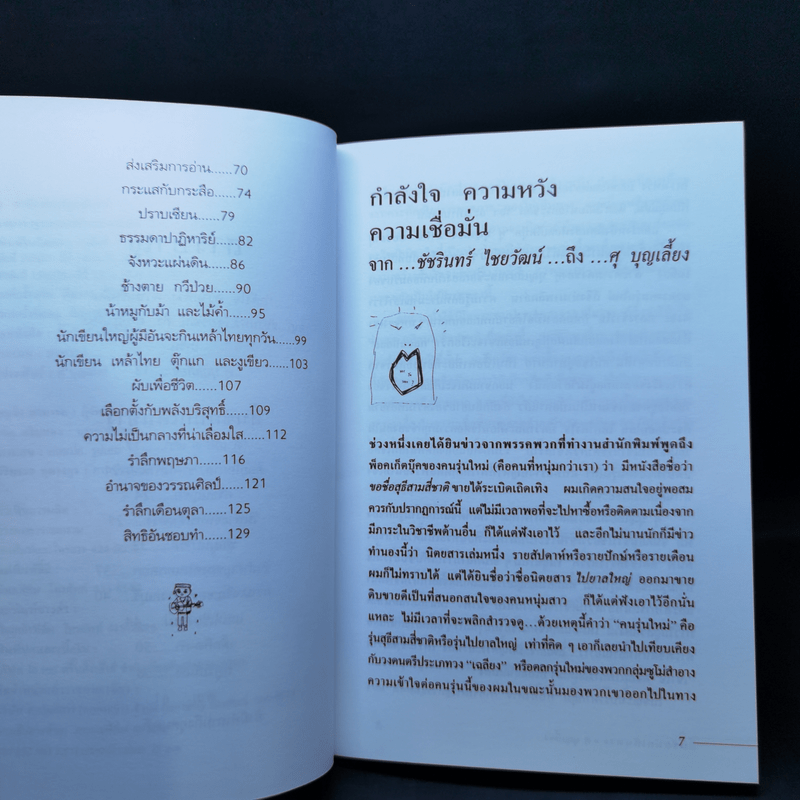 ส่งเสริมการอ่าน......70
กระแสกับกระสือ......74
ปราบเซียน......79
ธรรมดาปาฏิหาริย์......82
จังหวะแผ่นดิน......86
ช้างตาย กวีป่วย......90
น้าหมูกับม้า และไม้ค้ำ......95
นักเขียนใหญ่ผู้มีอันจะกินเหล้าไทยทุกวัน......99
นักเขียน เหล้าไทย ตุ๊กแก และงูเขียว......103
ผับเพื่อชีวิต......107
เลือกตั้งกับพลังบริสุทธิ์......109
ความไม่เป็นกลางที่น่าเลื่อมใส......112
รำลึกพฤษภา......116
อำนาจของวรรณศิลป์......121
รำลึกเดือนตุลา......125
สิทธิอันชอบทำ......129
กำลังใจ ความหวัง
ความเชื่อมั่น
จาก ...ชัชรินทร์ ไชยวัฒน์ ...ถึง ...ศุ บุญเลี้ยง
ช่วงหนึ่งเคยได้ยินข่าวจากพรรคพวกที่ทำงานสำนักพิมพ์พูดถึง
พ็อคเก็ตบุ๊คของคนรุ่นใหม่ (คือคนที่หนุ่มกว่าเรา) ว่า มีหนังสือชื่อว่า
ขอชื่อสุธีสามสี่ชาติ ขายได้ระเบิดเถิดเทิง ผมเกิดความสนใจอยู่พอสม
ควรกับปรากฏการณ์นี้ แต่ไม่มีเวลาพอที่จะไปหาซื้อหรือติดตามเนื่องจาก
มีภาระในวิชาชีพด้านอื่น ก็ได้แต่ฟังเอาไว้ และอีกไม่นานนักก็มีข่าว
ทำนองนี้ว่า นิตยสารเล่มหนึ่ง รายสัปดาห์หรือรายปักษ์หรือรายเดือน
ผมก็ไม่ทราบได้ แต่ได้ยินชื่อว่าชื่อนิตยสาร ไปยาลใหญ่ ออกมาขาย
ดิบขายดีเป็นที่สนอกสนใจของคนหนุ่มสาว ก็ได้แต่ฟังเอาไว้อีกนั่น
แหละ ไม่มีเวลาที่จะพลิกสำรวจดู...ด้วยเหตุนี้คำว่า “คนรุ่นใหม่” คือ
รุ่นสุธีสามสี่ชาติหรือรุ่นไปยาลใหญ่ เท่าที่คิด ๆ เอาก็เลยนำไปเทียบเคียง
กับวงดนตรีประเภทวง “เฉลียง” หรือตลกรุ่นใหม่ของพวกกลุ่มซูโม่สำอาง
ความเข้าใจต่อคนรุ่นนี้ของผมในขณะนั้นมองพวกเขาออกไปในทาง
7